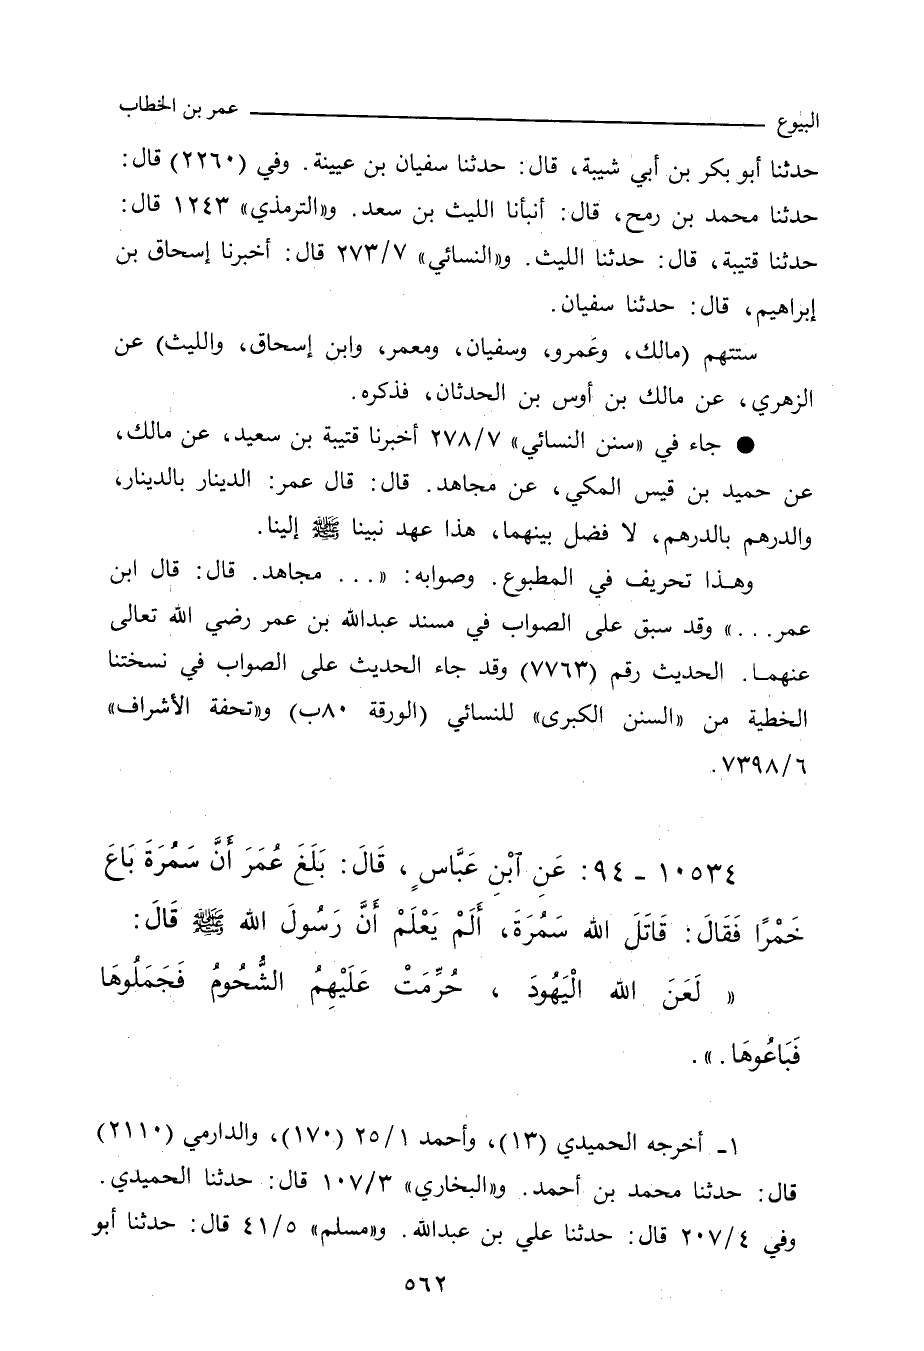 البيوع ـــــــــــــ عمر بن الخطاب
حدثنا أبو بكر بن أبي شيبة، قال: حدثنا سفيان بن عيينة. وفي (٢٢٦٠) قال:
حدثنا محمد بن رمح، قال: أنبأنا الليث بن سعد. و«الترمذي» ١٢٤٣ قال:
حدثنا قتيبة، قال: حدثنا الليث. و«النسائي» ٢٧٣/٧ قال: أخبرنا إسحاق بن
إبراهيم، قال: حدثنا سفيان.
ستتهم (مالك، وعَمرو، وسفيان، ومعمر، وابن إسحاق، والليث) عن
الزهري، عن مالك بن أوس بن الحدثان، فذكره.
● جاء في «سنن النسائي» ٢٧٨/٧ أخبرنا قتيبة بن سعيد، عن مالك،
عن حميد بن قيس المكي، عن مجاهد. قال: قال عمر: الدينار بالدينار،
والدرهم بالدرهم، لا فضل بينهما، هذا عهد نبينا ﷺ إلينا.
وهذا تحريف في المطبوع. وصوابه: «... مجاهد. قال: قال ابن
عمر...» وقد سبق على الصواب في مسند عبدالله بن عمر رضي الله تعالى
عنهما. الحديث رقم (٧٧٦٣) وقد جاء الحديث على الصواب في نسختنا
الخطية من «السنن الكبرى» للنسائي (الورقة ٨٠ب) و«تحفة الأشراف»
٧٣٩٨/٦.
١٠٥٣٤ ـ ٩٤: عَنِ ٱبْنِ عَبَّاسٍ، قَالَ: بَلَغَ عُمَرَ أَنَّ سَمُرَةَ بَاعَ
خَمْرًا فَقَالَ: قَاتَلَ الله سَمُرَةَ، أَلَمْ يَعْلَمْ أَنَّ رَسُولَ الله ﷺ قَالَ:
« لَعَنَ الله الْيَهُودَ ، حُرِّمَتْ عَلَيْهِمُ الشُّحُومُ فَجَمَلُوهَا
فَبَاعُوهَا.».
١ـ أخرجه الحميدي (١٣)، وأحمد ٢٥/١ (١٧٠)، والدارمي (٢١١٠)
قال: حدثنا محمد بن أحمد. و«البخاري» ١٠٧/٣ قال: حدثنا الحميدي.
وفي ٢٠٧/٤ قال: حدثنا علي بن عبدالله. و«مسلم» ٤١/٥ قال: حدثنا أبو
٥٦٢